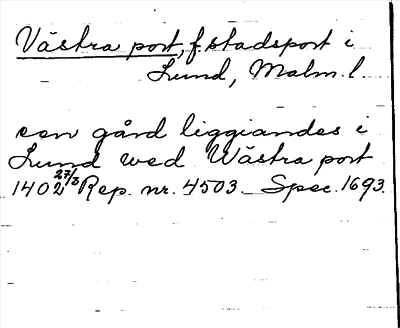 Västra port, f. stadsport i
Lund, Malm. l.
een gård liggiandes i
Lund wed Wästra port
1402 27/3 Rep. nr. 4503. Spec. 1693.